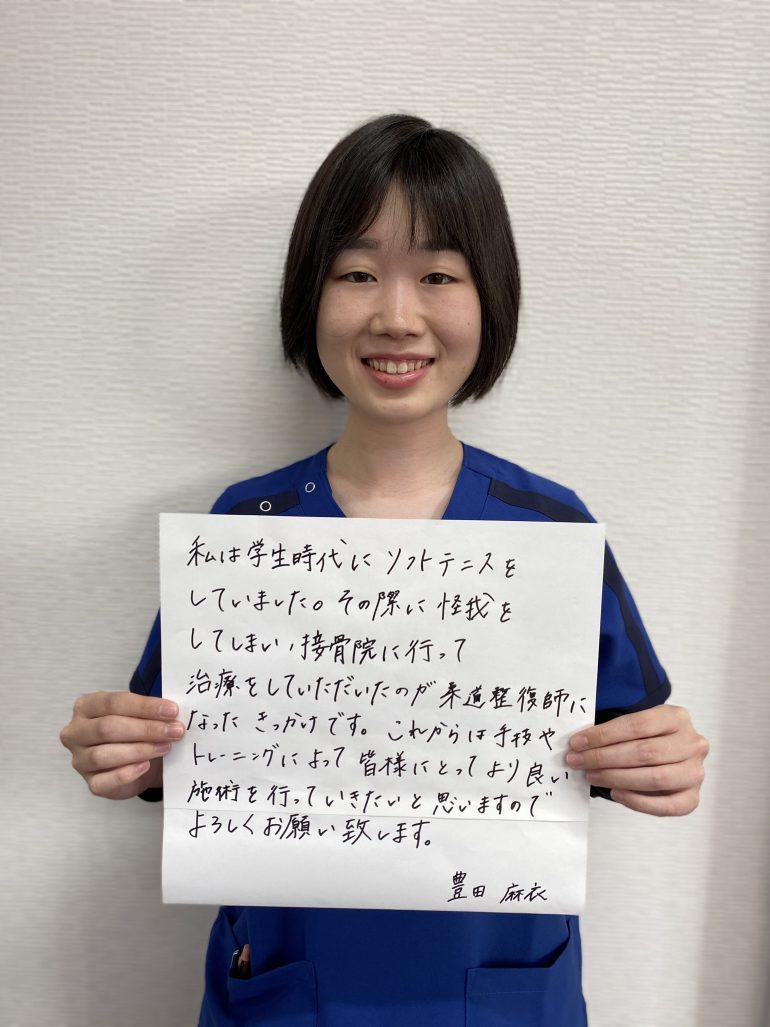 私は学生時代にソフトテニスを
していました。その際に怪我を
してしまい、接骨院に行って
治療をしていただいたのが柔道整復師に
なったきっかけです。これからは手技や
トレーニングによって皆様にとってより良い
施術を行っていきたいと思いますので
よろしくお願い致します。
豊田 麻衣